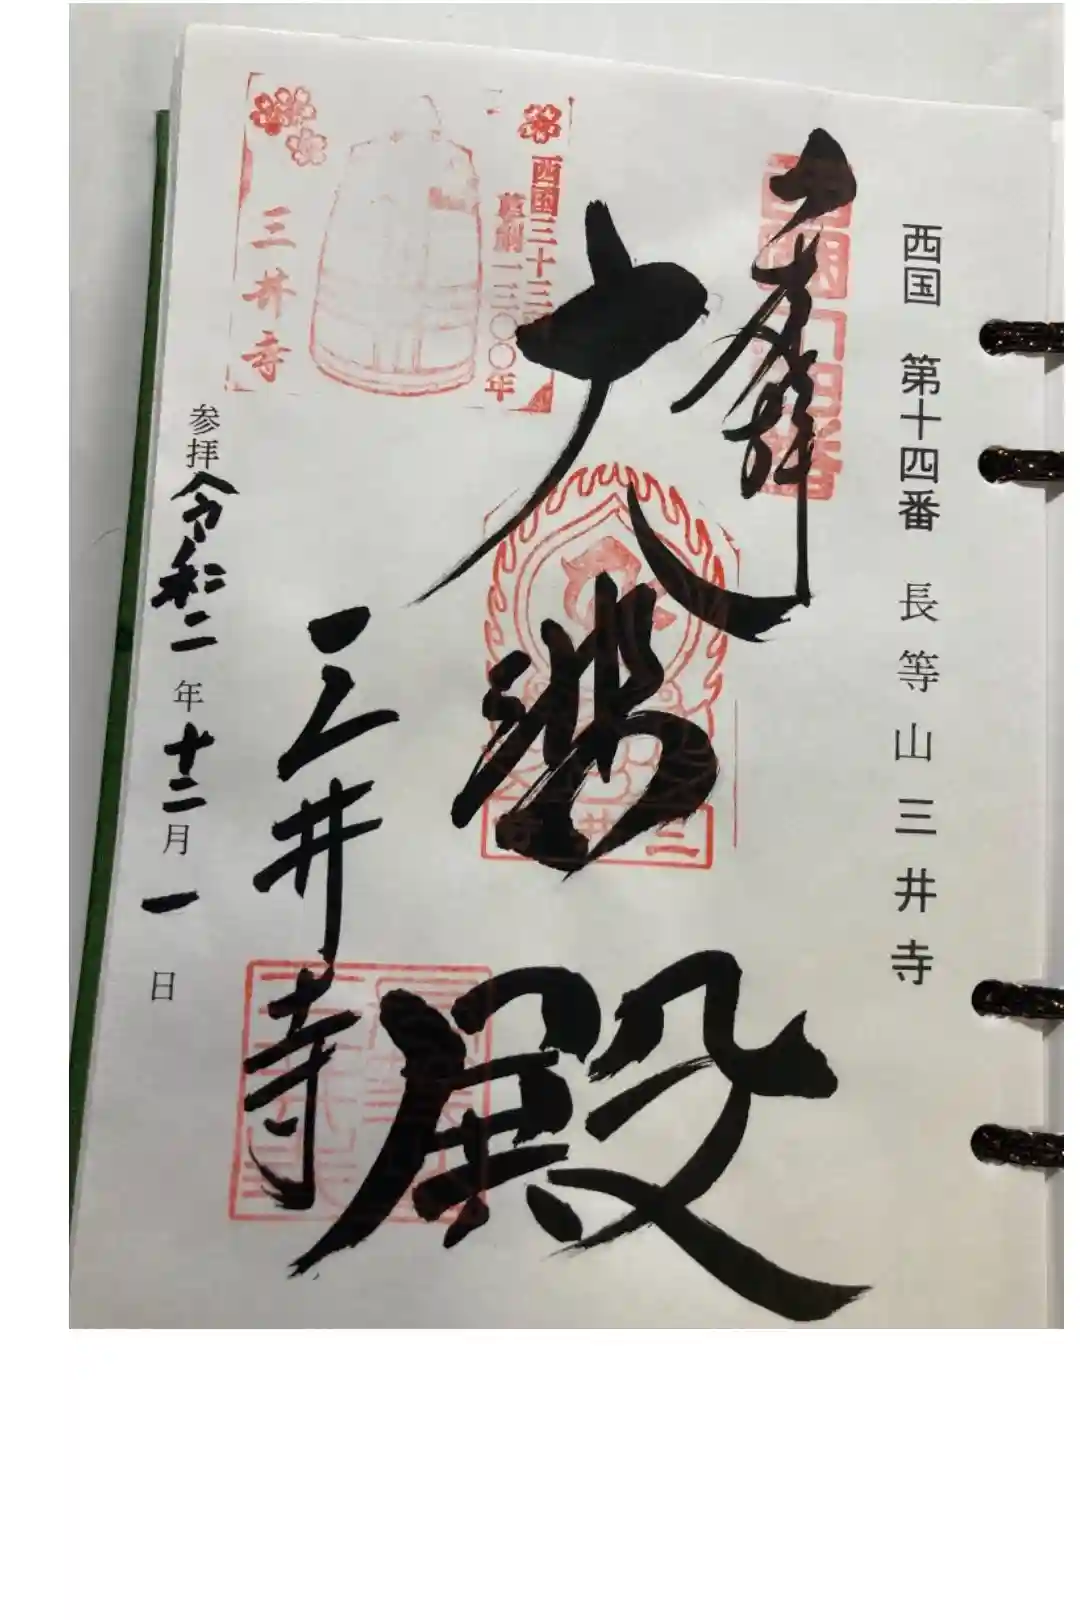 西国 第十四番 長等山三井寺
奉拝
大悲殿
三井寺
参拝令和二年十二月一日
西国三十三
草創一三〇〇年
三井寺
三井寺